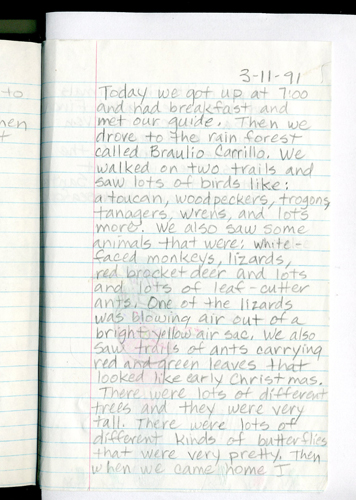 to
men
3-11-91
Today we got up at 7:00
and had breakfast and
met our guide. Then we
drove to the rain forest
called Braulio Carrillo. We
walked on two trails and
saw lots of birds like:
a toucan, woodpeckers, trogons,
tanagers, wrens, and lots
more. We also saw some
animals that were: white-
faced monkeys, lizards,
red brocket deer and lots
and lots of leaf-cutter
ants. One of the lizards
was blowing air out of a
bright yellow air sac. We also
saw trails of ants carrying
red and green leaves that
looked like early Christmas.
There were lots of different
trees and they were very
tall. There were lots of
different kinds of butterflies
that were very pretty. Then
when we came home I